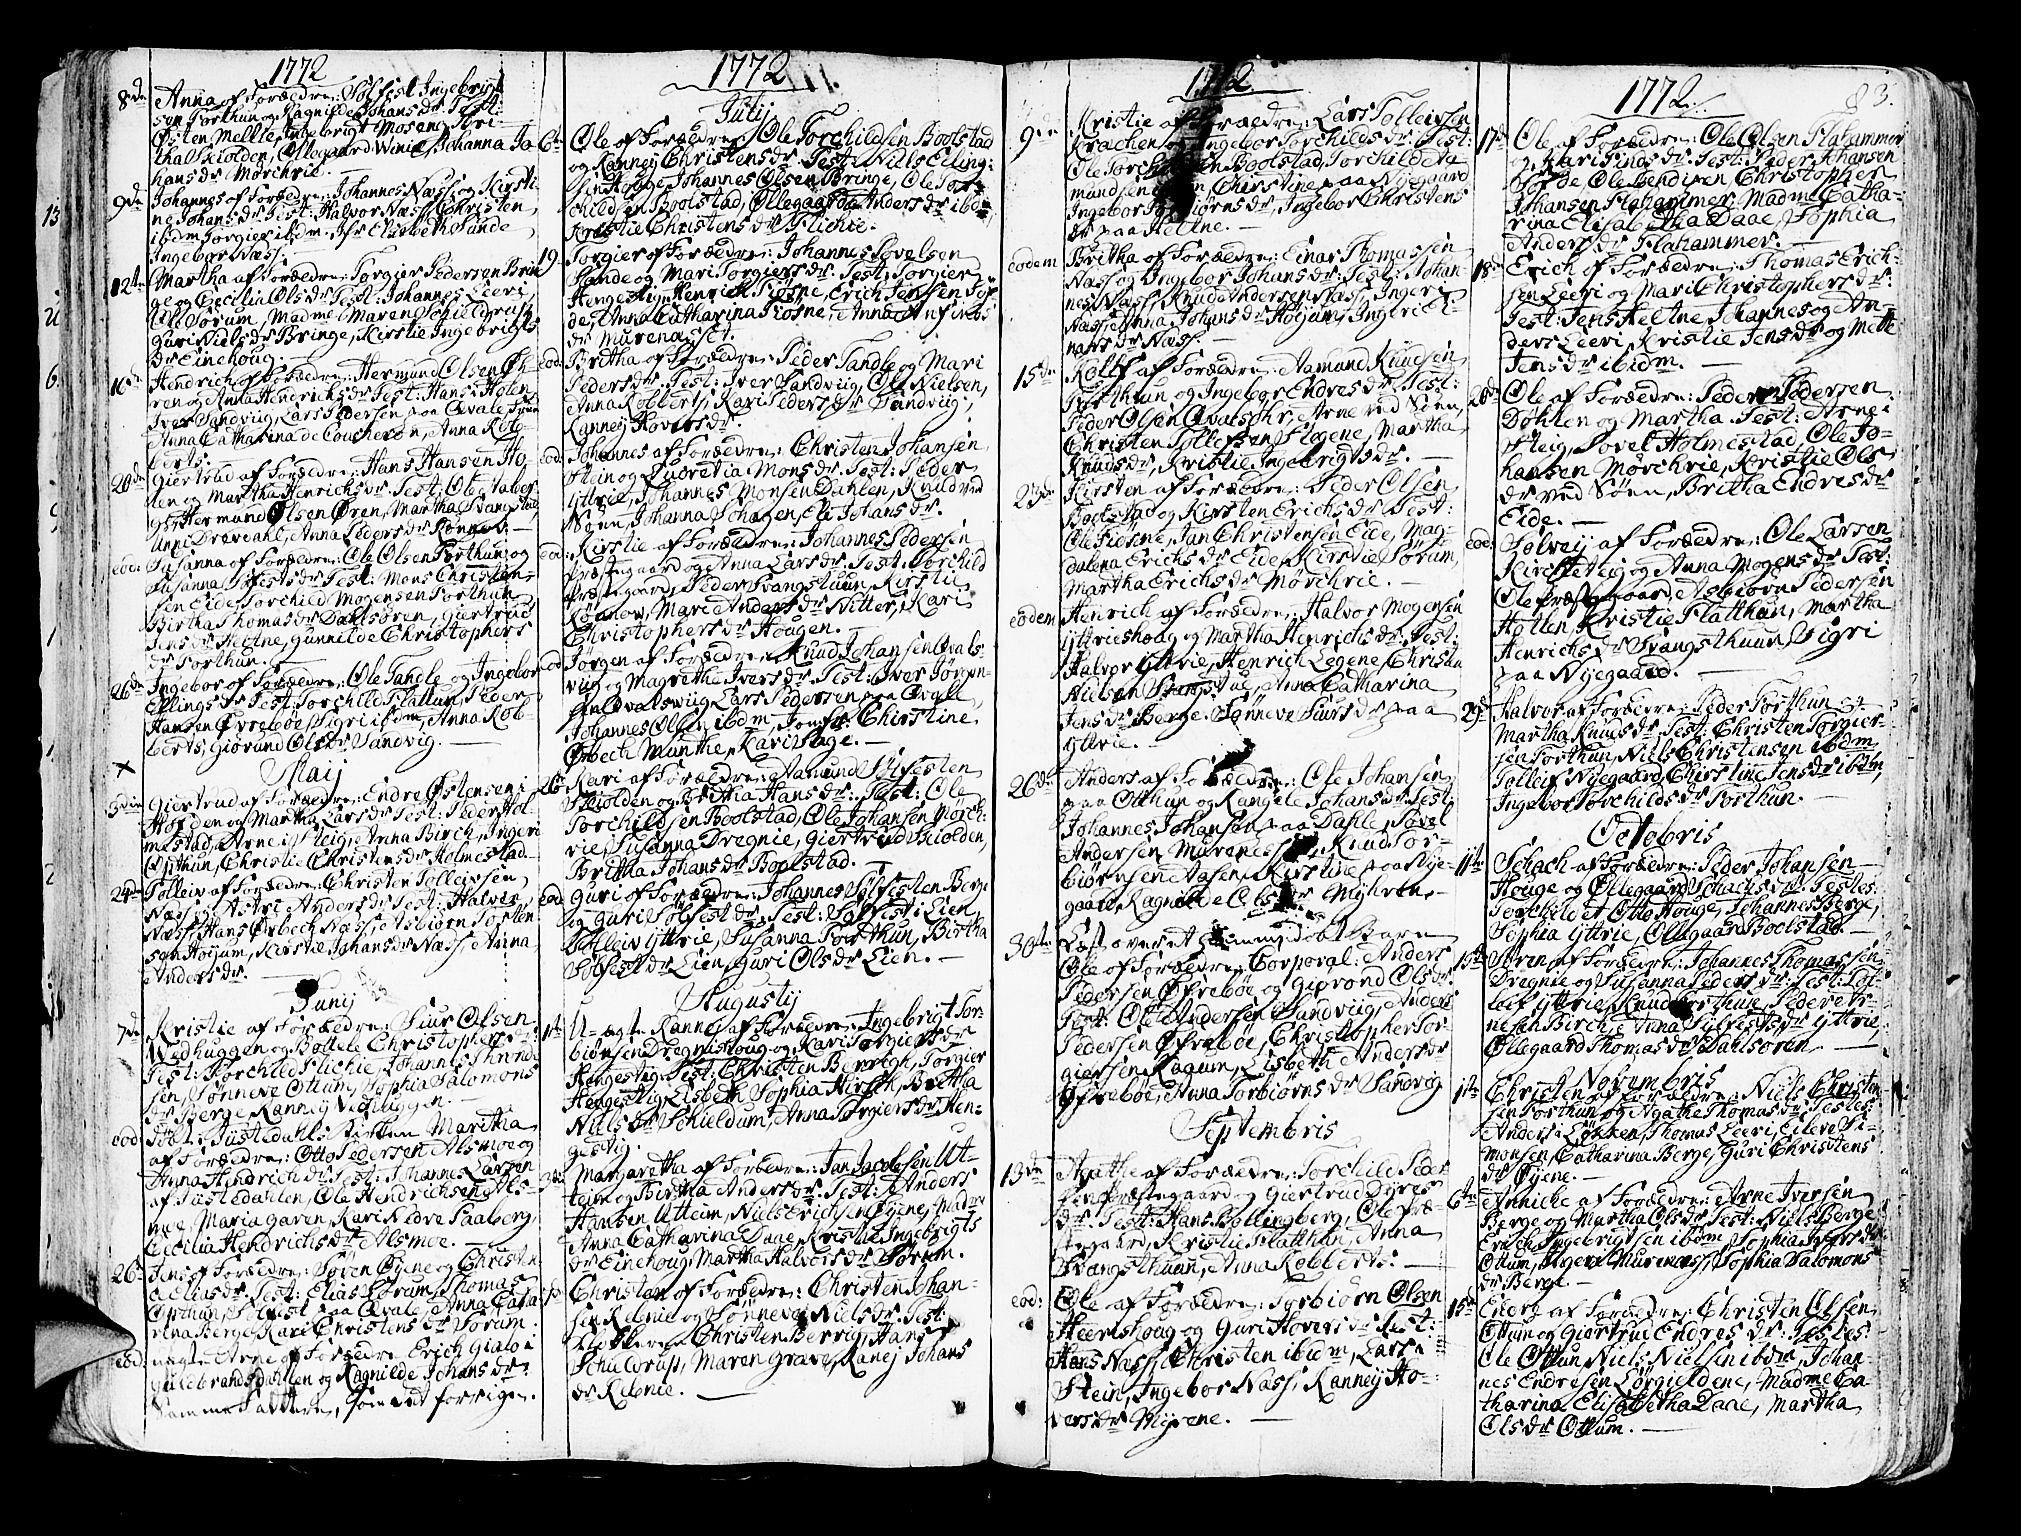 1772
8de Anna af Forældre: Solfest Ingebrigt
sen Forthun og Ragnilde Johans dr Test:
Østen Melle, Ingebrigt Mosang, Kri-
tha Skiolden, Ollegaard Winie, Johanna Jo
hans dr Mørchrie.
9de Johannes af Forældre: Johannes Næss og Kirsti
ne Johans dr Test: Halvor Næss, Christen
ibdm Torgier ibdm Elisbeth Sande
Ingebor Næss.
12te Martha af Forældre: Torgier Pedersen Brin
ge og Cecilia Ols dr Test: Johannes Leeri
Ole Sørum, Madme Maren Schieldrup
Guri Niels dr Bringe, Kirstie Ingebrigts
dr Einehoug.
16de Hendrich af Forældre: Hermund Olsen Øh
ren og Anna Hendrichs dr Test: Hans Holen
Iver Sandviig, Lars Pedersen paa Qvale
Anna Catharina de Coucheron, Anna Rob-
berts.
20de Giertrud af Forældre: Hans Hansen Ho
len og Martha Henrichs dr Test: Ole Halvor
Hermund Olsen Øren, Martha Svangstad,
Unni Drevdahl, Anna Peders dr Rønnei
eod: Susanna af Forældre: Ole Olsen Forthun og
Susanna Sylfests dr Test: Mons Christen
sen Eide, Torchild Mogensen Forthun
Birtha Thomas dr Dahlsøren, Giertrud
Jens dr Heltne, Gunnilde Christophers
dr Forthun.
26de Ingebor af Forældre: Ole Sandle og Ingebor
Ellings dr Test: Torchild Flattun, Peder
Hansen Øvrebøe, Sigri ibdm, Anna Rob-
berts, Giørund Ols dr Sandvig.
Maij
3die Giertrud af Forældre: Endre Østensen i
Holden og Martha Lars dr Test: Peder Hol-
mestad, Arne i Steig, Anna Birch, Ingeri
Opthun, Christie Christens dr Holmestad.
24de Tolleiv af Forældre: Christen Tolleivsen
Næss og Astri Anders dr Test: Halvor
Næss, Hans Ørbech Næss, Asbiørn Torsten
sen Høijum, Kirstie Johans dr Næss, Anna
Anders dr
Junij
7de Kristie af Forældre: Siur Olsen
Wedhuggen og Bottele Christophers dr
Test: Torchild Flichie, Johannes Thron
sen, Sønneve Ottum, Sophia Salomons
dr Berge, Ranneij Vedhuggen.
eod Døbt i Justedahls Kirken Maritha
af Forældre: Otto Pedersen Alsmoe og
Anna Hendrich dr Test: Johannes Larsen
af Justedahlen, Ole Hendrichsen Als-
moe, Maria Garen, Kari Nedre Faaberg,
Cecilia Hendrichs dr Alsmoe.
26de Jens af Forældre: Søren Øyene og Christi
Elias dr Test: Elias Sørum, Thomas
Opthun, Sylfest paa Qvale, Anna Catha
rina Berge, Kari Christens dr Sørum.
eod: uægte Arne af Forældre Erich Gialo i
Guldbrandsdahlen og Ragnilde Johans dr
Samme Faddere, som ved forrige.
1772
Julij
6te Ole af Forældre: Ole Torchildsen Boolstad
og Ranneij Christens dr Test: Niels Elling-
sen Hougge, Johannes Olsen Bringe, Ole Tor-
childsen Boolstad, Ollegaarda Anders dr ibdm
Kristie Christens dr Flichie.
19 Torgier af Forældre: Johannes Sovelsen
Sande og Mari Torgiers dr Test: Torgier
Hengestig, Henrich Fiøsne, Erich Jensen For
de, Anna Catharina Fiøsne, Anna Anfinds
dr Murenæsset.
eod: Britha af Forældre: Peder Sandle og Mari
Peders dr Test: Iver Sandviig, Ole Nielsen,
Anna Robberts, Kari Peders dr Sandviig,
Ranneij Hovers dr.
eod: Johannes af Forældre: Christen Johansen
Stein og Lucretia Mons dr Test: Peder
Yttrie, Johannes Monsen Dahlen, Knud ved
Søen, Johanna Schagen, Eli Johans dr.
eod: Kirstie af Forældre: Johannes Pedersen
Præstegaard og Anna Lars dr Test: Torchild
Præstegaard, Peder Svangstuun, Kirstie
Rønnow, Mari Anders dr Nitter, Kari
Christophers dr Hougen.
eod Jørgen af Forældre: Knud Johansen Qvals
viig og Magrethe Ivers dr Test: Iver Jørgen-
sen Qvalsviig, Lars Pedersen paa Qvale,
Johannes Olsen ibdm, Jomfr: Christine
Ørbech Munthe, Kari Hage.
26de Kari af Forældre: Aamund Sylfesten
Skiolden og Britha Hans dr Test: Ole
Torchildsen Boolstad, Ole Johansen Mørch-
rie, Susanna Dregnie, Giertrud Skiolden,
Britha Johans dr Boolstad.
eod Guri af Forældre: Johannes Solfesten Berge
og Guri Solfest dr Test: Solfest i Eien,
Tolleiv Yttrie, Susanna Forthun, Birtha
Solfest dr Eien, Guri Ols dr Eien.
Augustij
1ste U-ægte Ranneij af Forældre: Ingebrigt Tor-
biørnsen Dregnishoug og Kari Torgiers dr
Hengestig. Test: Christen Berrigh, Torgier
Hengestig, Elsbeth Sophia Hirsch, Britha
Niels dr Schieldum, Anna Torgiers dr Hen-
gestig.
Margaretha af Forældre: Jan Jacobsen Ut-
teim og Birtha Anders dr Test: Anders
Hansen Utteim, Niels Erichsen Øyene, Madme
Anna Catharina Daae, Kristie Ingebrigts
dr Einehoug, Martha Halvors dr Sørum.
Christen af Forældre: Christen Johan-
sen Rebnie og Sønneve Niels dr Test:
Klokkeren Christen Berrig, Hans
Schieldrup, Maren Grave, Ranneij Johans
dr Rebnie.
1772
9de Kristie af Forældre: Lars Tolleivsen
Krachen og Ingebor Torchilds dr Test:
Ole Torchildsen Boolstad, Torchild Aa
mundsen Christine paa Nijegaard
Ingebor Torbiørns dr, Ingebor Christens
dr paa Heltne.
eodem Britha af Forældre: Einar Thomassen
Næss og Ingebor Johans dr Test: Johan-
nes Næss, Knud Andersen Næss, Ingeri
Næss, Anna Johans dr Høijum, Ingeri Ei-
nars dr Næss.
15de Rolf af Forældre: Aamund Knudsen
Forthun og Ingebor Endres dr Test:
Peder Olsen Qvalsøhr, Arne ved Søen,
Christen Tollefsen Flogene, Martha
Knuds dr, Kristie Ingebrigts dr.
23de Kirsten af Forældre: Peder Olsen
Boolstad og Kirsten Erichs dr Test:
Ole Fiøsne, Jan Christensen Eide, Mag-
dalena Erichs dr Eide, Kirstie Sørum,
Martha Erichs dr Mørchrie.
eodem Henrich af Forældre: Halvor Mogensen
Yttrieshoug og Martha Henrichs dr Test:
Halvor Yttrie, Henrich Legene, Christen
Nielsen Svangstue, Anna Catharina
Jens dr Berge, Sønneve Siurs dr paa
Yttrie.
26de Anders af Forældre: Ole Johansen
paa Otthun og Rangele Johans dr Test:
Johannes Johansen paa Dahle, Sovel
Andersen Murenæsset, Knud Tor-
biørnsen Aasen, Kirstine paa Nye-
gaard, Ragnilde Ols dr Myhren.
30te Lyst over et hiemmedøbt Barn
Ole af Forældre: Corporal: Anders
Pedersen Øfrebøe og Giørond Ols dr
Test: Ole Andersen Sandviig, Anders
Pedersen Øfrebøe, Christopher Tor-
giersen Ragum, Lisbeth Anders dr
Øfrebøe, Anna Torbiørns dr Sandvig
Septembris
13de Agathe af Forældre: Torchild Peder
sen Præstegaard og Giertrud Dyres
dr Test: Hans Bollingberg, Ole Præ-
stegaard, Kristie Flatthun, Anna
Svangsthuun, Anna Robberts.
eod: Ole af Forældre: Torbiørn Olsen
Heereshoug og Guri Hovers dr Test:
Hans Næss, Christen ibidm, Lars i
Stein, Ingebor Næss, Ranneij Ho-
vers dr Myrene.
1772
83.
17de Ole af Forældre: Ole Olsen Flahammer
og Kari Finds dr Test: Peder Johansen
Forde, Ole Bendixen, Christopher
Johansen Flahammer, Madme Catha-
rina Elisabetha Daae, Sophia
Anders dr Flahammer.
18de Erich af Forældre: Thomas Erich-
sen Leeri og Mari Christophers dr:
Test: Jens Heltne, Johannes og An-
ders Leeri, Kristie Jens dr og Mette
Jens dr ibidm.
20de Ole af Forældre: Peder Pedersen
Døhlen og Martha Test: Arne i
Steig, Sovel Holmestad, Ole Jo-
hansen Mørchrie, Kristie Ols
dr ved Søen, Britha Endres dr
Eide.
eod: Solveij af Forældre: Ole Larsen
Kircheteig og Anna Mogens dr Test:
Ole Præstegaard, Asbiørn Pedersen
Hollen, Kristie Flatthun, Martha
Henrichs dr Svangsthuun, Sigri
paa Nijegaard.
29de Halvor af Forældre: Peder Forthun og
Martha Knuds dr Test: Christen Torgier-
sen Forthun, Niels Christensen ibdm,
Tolleif Nijegaard, Chirstine Jens dr ibdm,
Ingebor Torchilds dr Forthun.
Octobris
11te Schach af Forældre: Peder Johansen
Houge og Ollegaard Schachs dr Testes:
Torchild et Otto Houge, Johannes Berge,
Sophia Yttrie, Ollegaar Boolstad.
Søren af Forældre: Johannes Thomassen
Dregnie og Susanna Peders dr Test: Tol-
leif Yttrie, Knud Forthun, Peder Ar-
nesen Birch, Anna Sylfests dr Yttrie,
Ollegaard Thomas dr Dahlsøren
Novembris
1ste Christen af Forældre: Niels Christen
sen Forthun og Agathe Thomas dr Testes:
Anders Løkken, Thomas Leeri, Eileve Si-
monsen, Catharina Berge, Guri Christens
dr Øyene.
6te Anniche af Forældre: Arne Iversen
Berge og Martha Ols dr Test: Niels Berge
Erich Ingebrigtsen ibidm Sophia Ivers dr
Ottum, Ingeri Murenæss, Sophia Salomons
dr Berge.
15de Endre af Forældre: Christen Olsen
Ottum og Giertrud Endres dr: Testes:
Ole Ottun, Niels Nielsen ibdm, Johan-
nes Endresen Lørgieldene, Madme Ca-
tharina Elisabetha Daae, Martha
Ols dr Ottum.